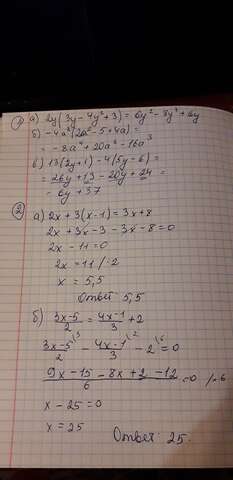 ① а) 2y(3y-4y³+3) = 6y²-8y⁴+6y
б) -4a²(2a²-5+4a) =
= -8a⁴+20a²-16a³
в) 13(2y+1)-4(5y-6) =
= 26y+13-20y+24 =
= 6y+37
②
а) 2x+3(x-1)=3x+8
2x+3x-3-3x-8=0
2x-11=0
2x=11 /:2
x = 5,5
Ответ: 5,5
б) 3x-5/2 = 4x-1/3 + 2
3x-5/2 \3 - 4x-1/3 \2 - 2 \6 = 0
9x-15-8x+2-12/6 = 0 /·6
x-25=0
x=25
Ответ: 25.